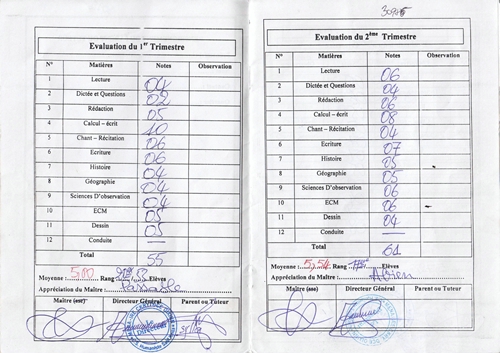 Evaluation du 1er Trimestre
N° Matières Notes Observation
1 Lecture 04
2 Dictée et Questions 02
3 Rédaction 05
4 Calcul – écrit 10
5 Chant – Récitation 06
6 Ecriture 06
7 Histoire 04
8 Géographie 04
9 Sciences D'observation 04
10 ECM 05
11 Dessin 05
12 Conduite —
Total 55
Moyenne : 5,00 Rang Elèves
Appréciation du Maître : Passable
Maître (sse) Directeur Général Parent ou Tuteur
Evaluation du 2ème Trimestre
N° Matières Notes Observation
1 Lecture 06
2 Dictée et Questions 04
3 Rédaction 06
4 Calcul – écrit 08
5 Chant – Récitation 04
6 Ecriture 07
7 Histoire 05
8 Géographie 05
9 Sciences D'observation 06
10 ECM 06
11 Dessin 04
12 Conduite —
Total 61
Moyenne : 5,54 Rang Elèves
Appréciation du Maître :
Maître (sse) Directeur Général Parent ou Tuteur